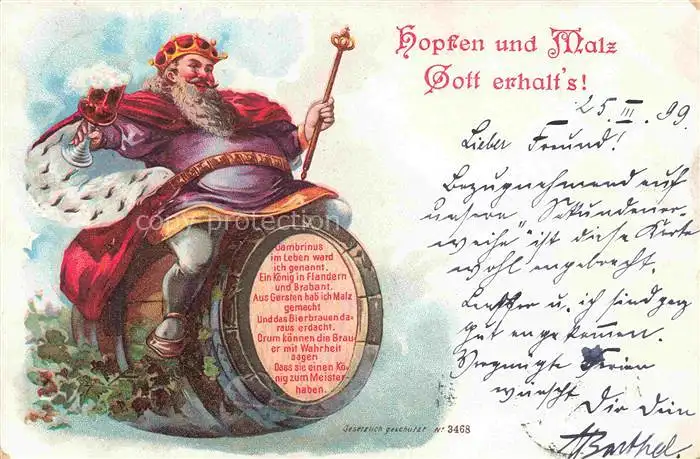 Hopfen und Malz
Gott erhalt's!
25. III. 99
Lieber Freund!
Bezugnehmend auf
unsere „Sekundener-
weihe" ist diese Karte
wohl angebracht.
u. ich sind ganz
gut angekommen.
Vergnügte Ferien
wünscht
Dir Dein
Barthel.
Gambrinus
im Leben ward
ich genannt.
Ein König in Flandern
und Brabant.
Aus Gersten hab ich Malz
gemacht
Und das Bierbrauen da-
raus erdacht.
Drum können die Brau-
er mit Wahrheit
sagen
Dass sie einen Kö-
nig zum Meister
haben.
Gesetzlich geschützt Nr. 3468
copy protection